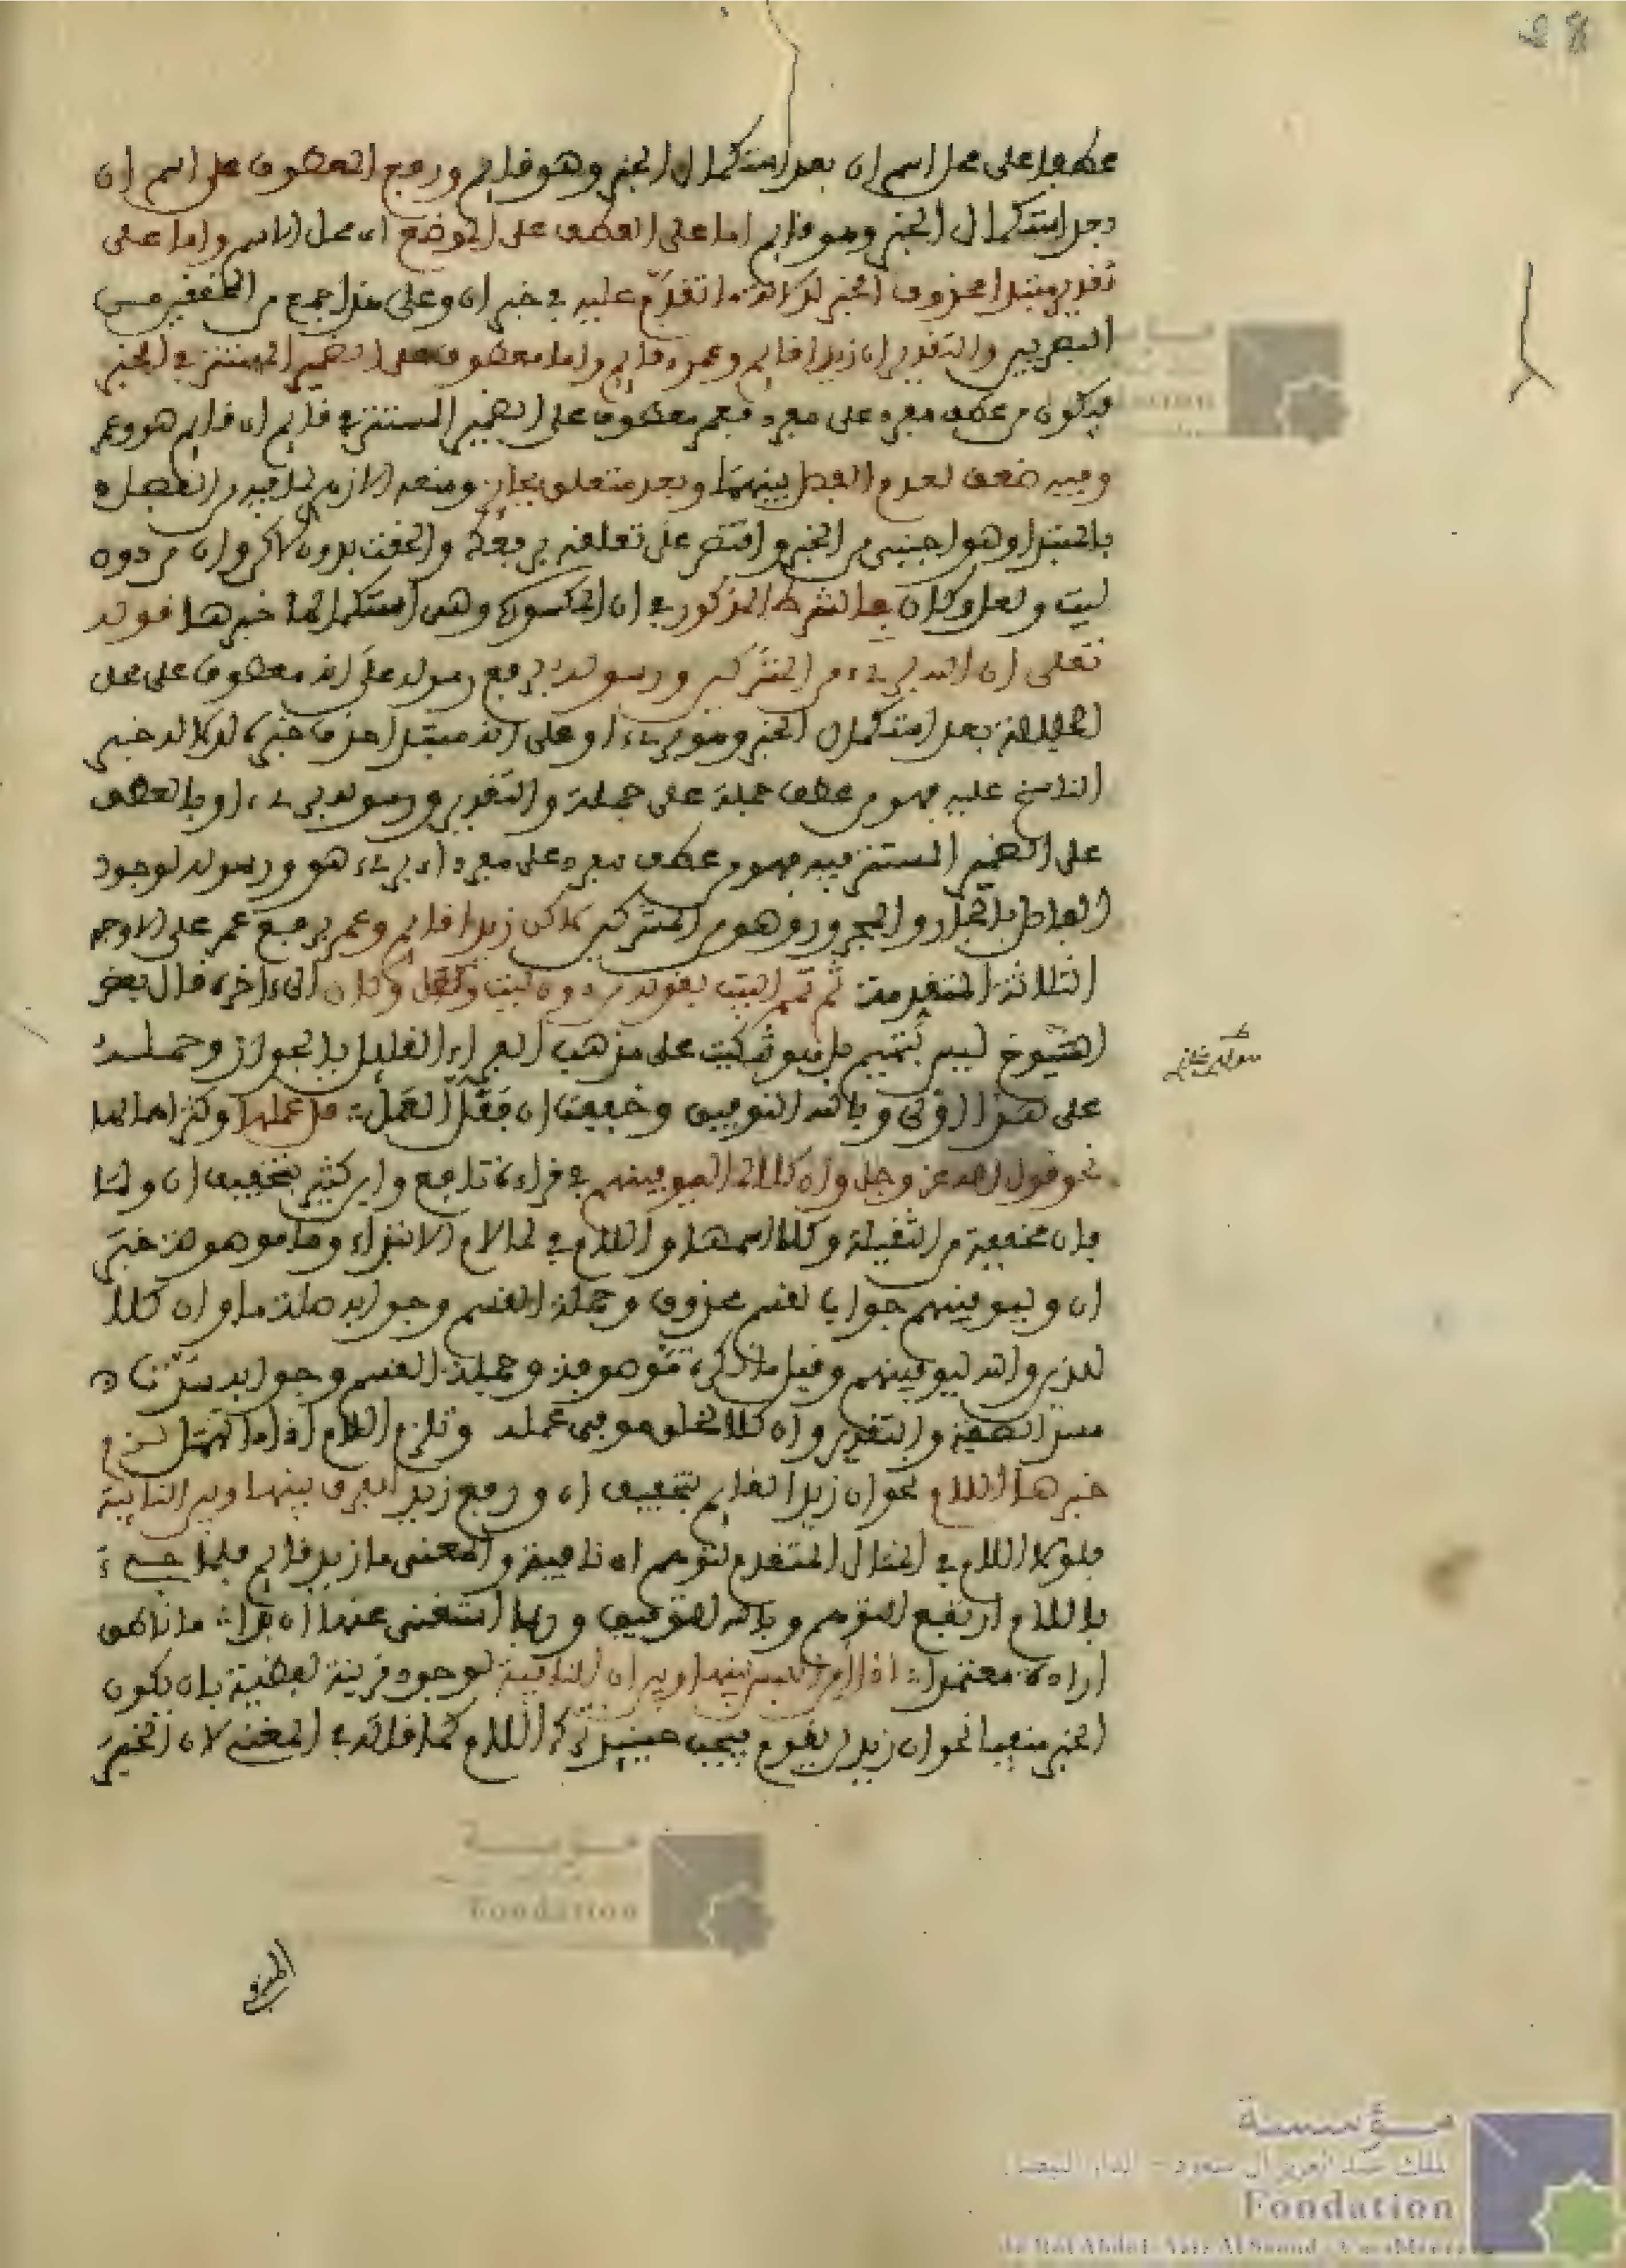 عطفا على محل اسم ان بعد استكمال الخبر وهو قايم ورفع المعطوف على اسم ان
بعد استكمال الخبر وهو قايم اما على العطف على الموضع اي محل الاسم واما على
تقدير مبتدا محذوف الخبر لدلالة ما تقدم عليه في خبر ان وعلى هذا جمع من المحققين من
البصريين والتقدير ان زيدا قايم وعمرو قايم واما معطوف على الضمير المستتر في الخبر
فيكون من عطف مفرد على مفرد فعمر معطوف على الضمير المستتر في قايم اي قايم هو وعمر
وفيه ضعف لعدم الفصل بينهما وبعد متعلق بجايز ومنعه الازهري لما فيه من الفصل
بالمبتدا وهو اجنبي من الخبر واقتصر على تعلقه برفعك والحقت بان لاكن وان من دون
ليت ولعل وكان بالشرط المذكور في ان المكسورة وهي استكمالها خبرها قوله
تعلى ان الله بريء من المشركين ورسوله برفع رسوله على انه معطوف على محل
الجلالة بعد استكمال الخبر وهو بريء او على انه مبتدا حذف خبره لدلالة خبر
الناسخ عليه فهو من عطف جملة على جملة والتقدير ورسوله بريء او بالعطف
على الضمير المستتر فيه فهو من عطف مفرد على مفرد اي بريء هو ورسوله لوجود
الفاصل بالجار والمجرور وهو من المشركين لاكن زيدا قايم وعمر برفع عمر على الاوجه
الثلاثة المتقدمة ثم تمم البيت بقوله من دون ليت ولعل وكان الى ءاخره قال بعض
الشيوخ ليس بتتميم بل هو تنكيت على مذهب الفراء القايل بالجواز وحمله
على هذا اولى وبالله التوفيق وخففت ان فقل العمل قل عملها وكثر اهمالها
نحو قول الله عز وجل وان كلا لما ليوفينهم في قراءة نافع وابن كثير بتخفيف ان ولما
فان مخففة من الثقيلة وكلا اسمها واللام في لما لام الابتداء وما موصولة خبر
ان وليوفينهم جوابا لقسم محذوف وجملة القسم وجوابه صلة ما وان كلا
للذين والله ليوفينهم وقيل ما نكرة موصوفة وجملة القسم وجوابه سدتا
مسد الصفة والتقدير وان كلا لخلق موفى عمله وتلزم اللام اذا ما تهمل لزم
خبرها اللام نحو ان زيد لقايم بتخفيف ان ورفع زيد للفرق بينها وبين النافية
فلولا اللام في المثال المتقدم لتوهم ان نافية والمعنى ما زيد قايم فلما جيء
باللام ارتفع التوهم وبالله التوفيق وربما استغني عنها ان بدا ما ناطق
اراده معتمدا اذا امن اللبس بينها وبين ان النافية لوجود قرينة لفظية بان يكون
الخبر منفيا نحو ان زيد لن يقوم فيجب حينيذ ترك اللام كما قاله في المغني لان الخبر
المنفي
مؤسسة
الملك عبد العزيز آل سعود - الدار البيضاء
Fondation
du Roi Abdul-Aziz Al Saoud - Casablanca